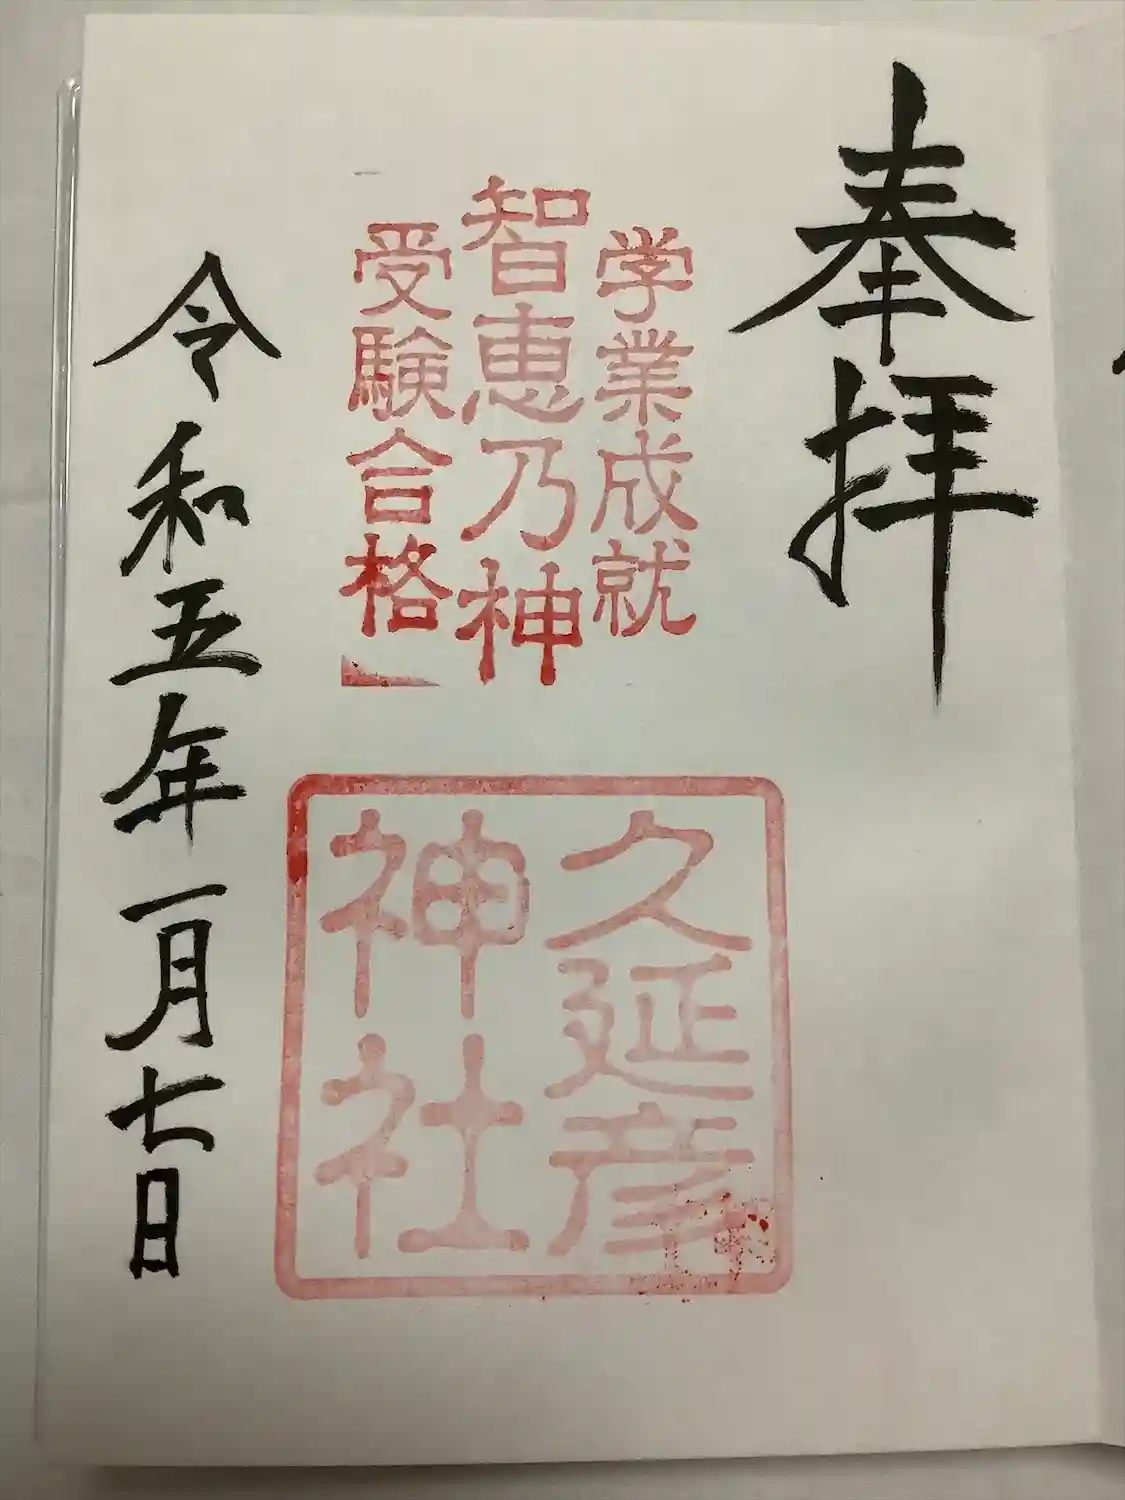 奉拝
学業成就
智恵乃神
受験合格
久延彦
神社
令和五年一月七日